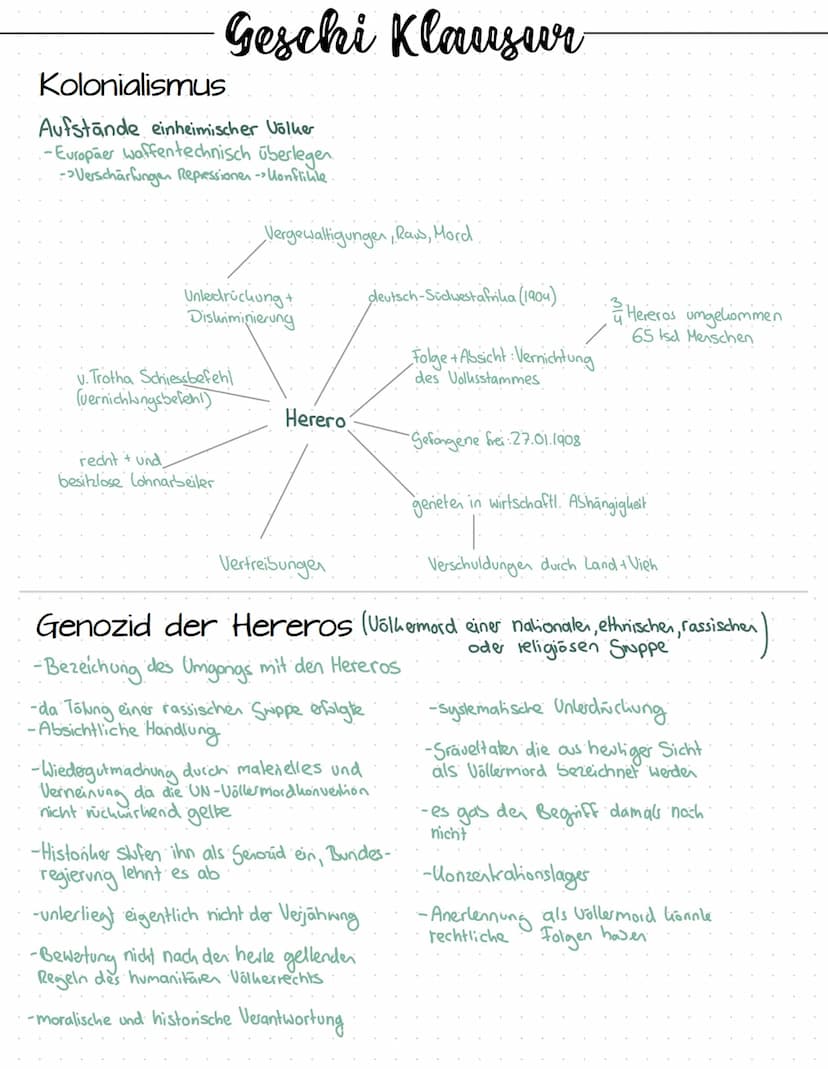 Geschi Klausur
Kolonialismus
Aufstände einheimischer Völker
-Europäer waffentechnisch überlegen
->Verschärfungen Repressionen -> Konflikte
Vergewaltigungen, Raub, Mord
Unterdrückung +
Diskriminierung
deutsch-Südwestafrika (1904)
3/4 Hereros umgekommen
65 tsd Menschen
Folge + Absicht: Vernichtung
des Volksstammes
v. Trotha Schiessbefehl
(vernichtungsbefehl)
Herero
Gefangene frei: 27.01.1908
recht + und
besitzlose Lohnarbeiter
gerieten in wirtschaftl. Abhängigkeit
Vertreibungen
Verschuldungen durch Land + Vieh
Genozid der Hereros (Völkermord einer nationalen, ethnischen, rassischen
oder religiösen Gruppe)
-Bezeichung des Umgangs mit den Hereros
-da Tötung einer rassischen Gruppe erfolgte
-Absichtliche Handlung
-Wiedergutmachung durch materielles und
Verneinung da die UN-Völkermordkonvention
nicht rückwirkend gelte
-Historiker stufen ihn als Genozid ein, Bundes-
regierung lehnt es ab
-unterliegt eigentlich nicht der Verjährung
-Bewertung nicht nach den heute geltenden
Regeln des humanitären Völkerrechts
-moralische und historische Verantwortung
-systematische Unterdrückung
-Gräueltaten die aus heutiger Sicht
als Völkermord bezeichnet werden
-es gab den Begriff damals noch
nicht
-Konzentrationslager
-Anerkennung als Völkermord könnte
rechtliche Folgen haben